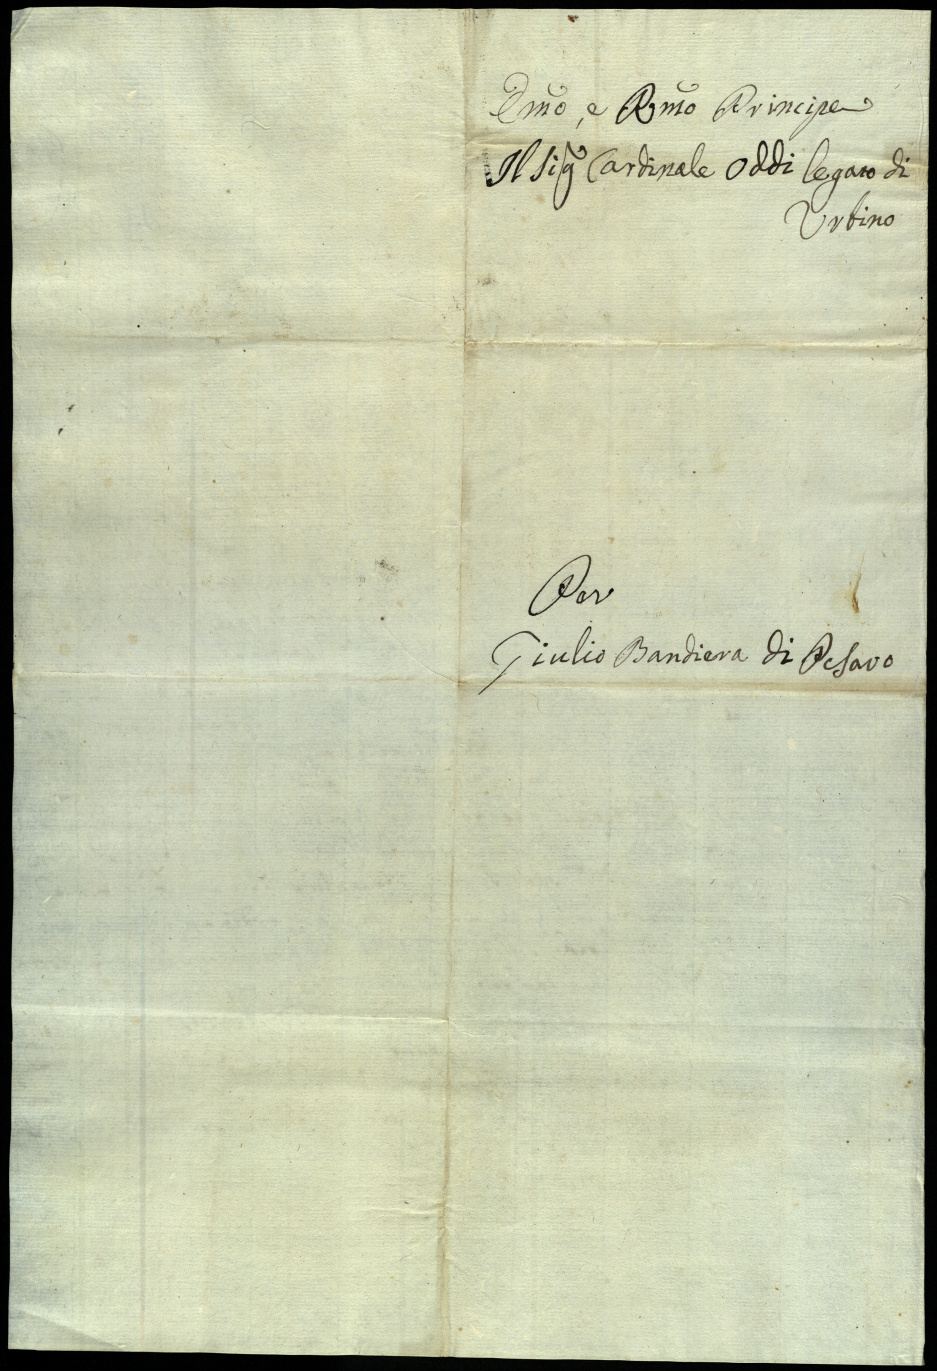 Emõ, e Rmõ Principe
Il Sig̃ Cardinale Oddi legato di
Urbino
Per
Giulio Bandiera di Pesaro